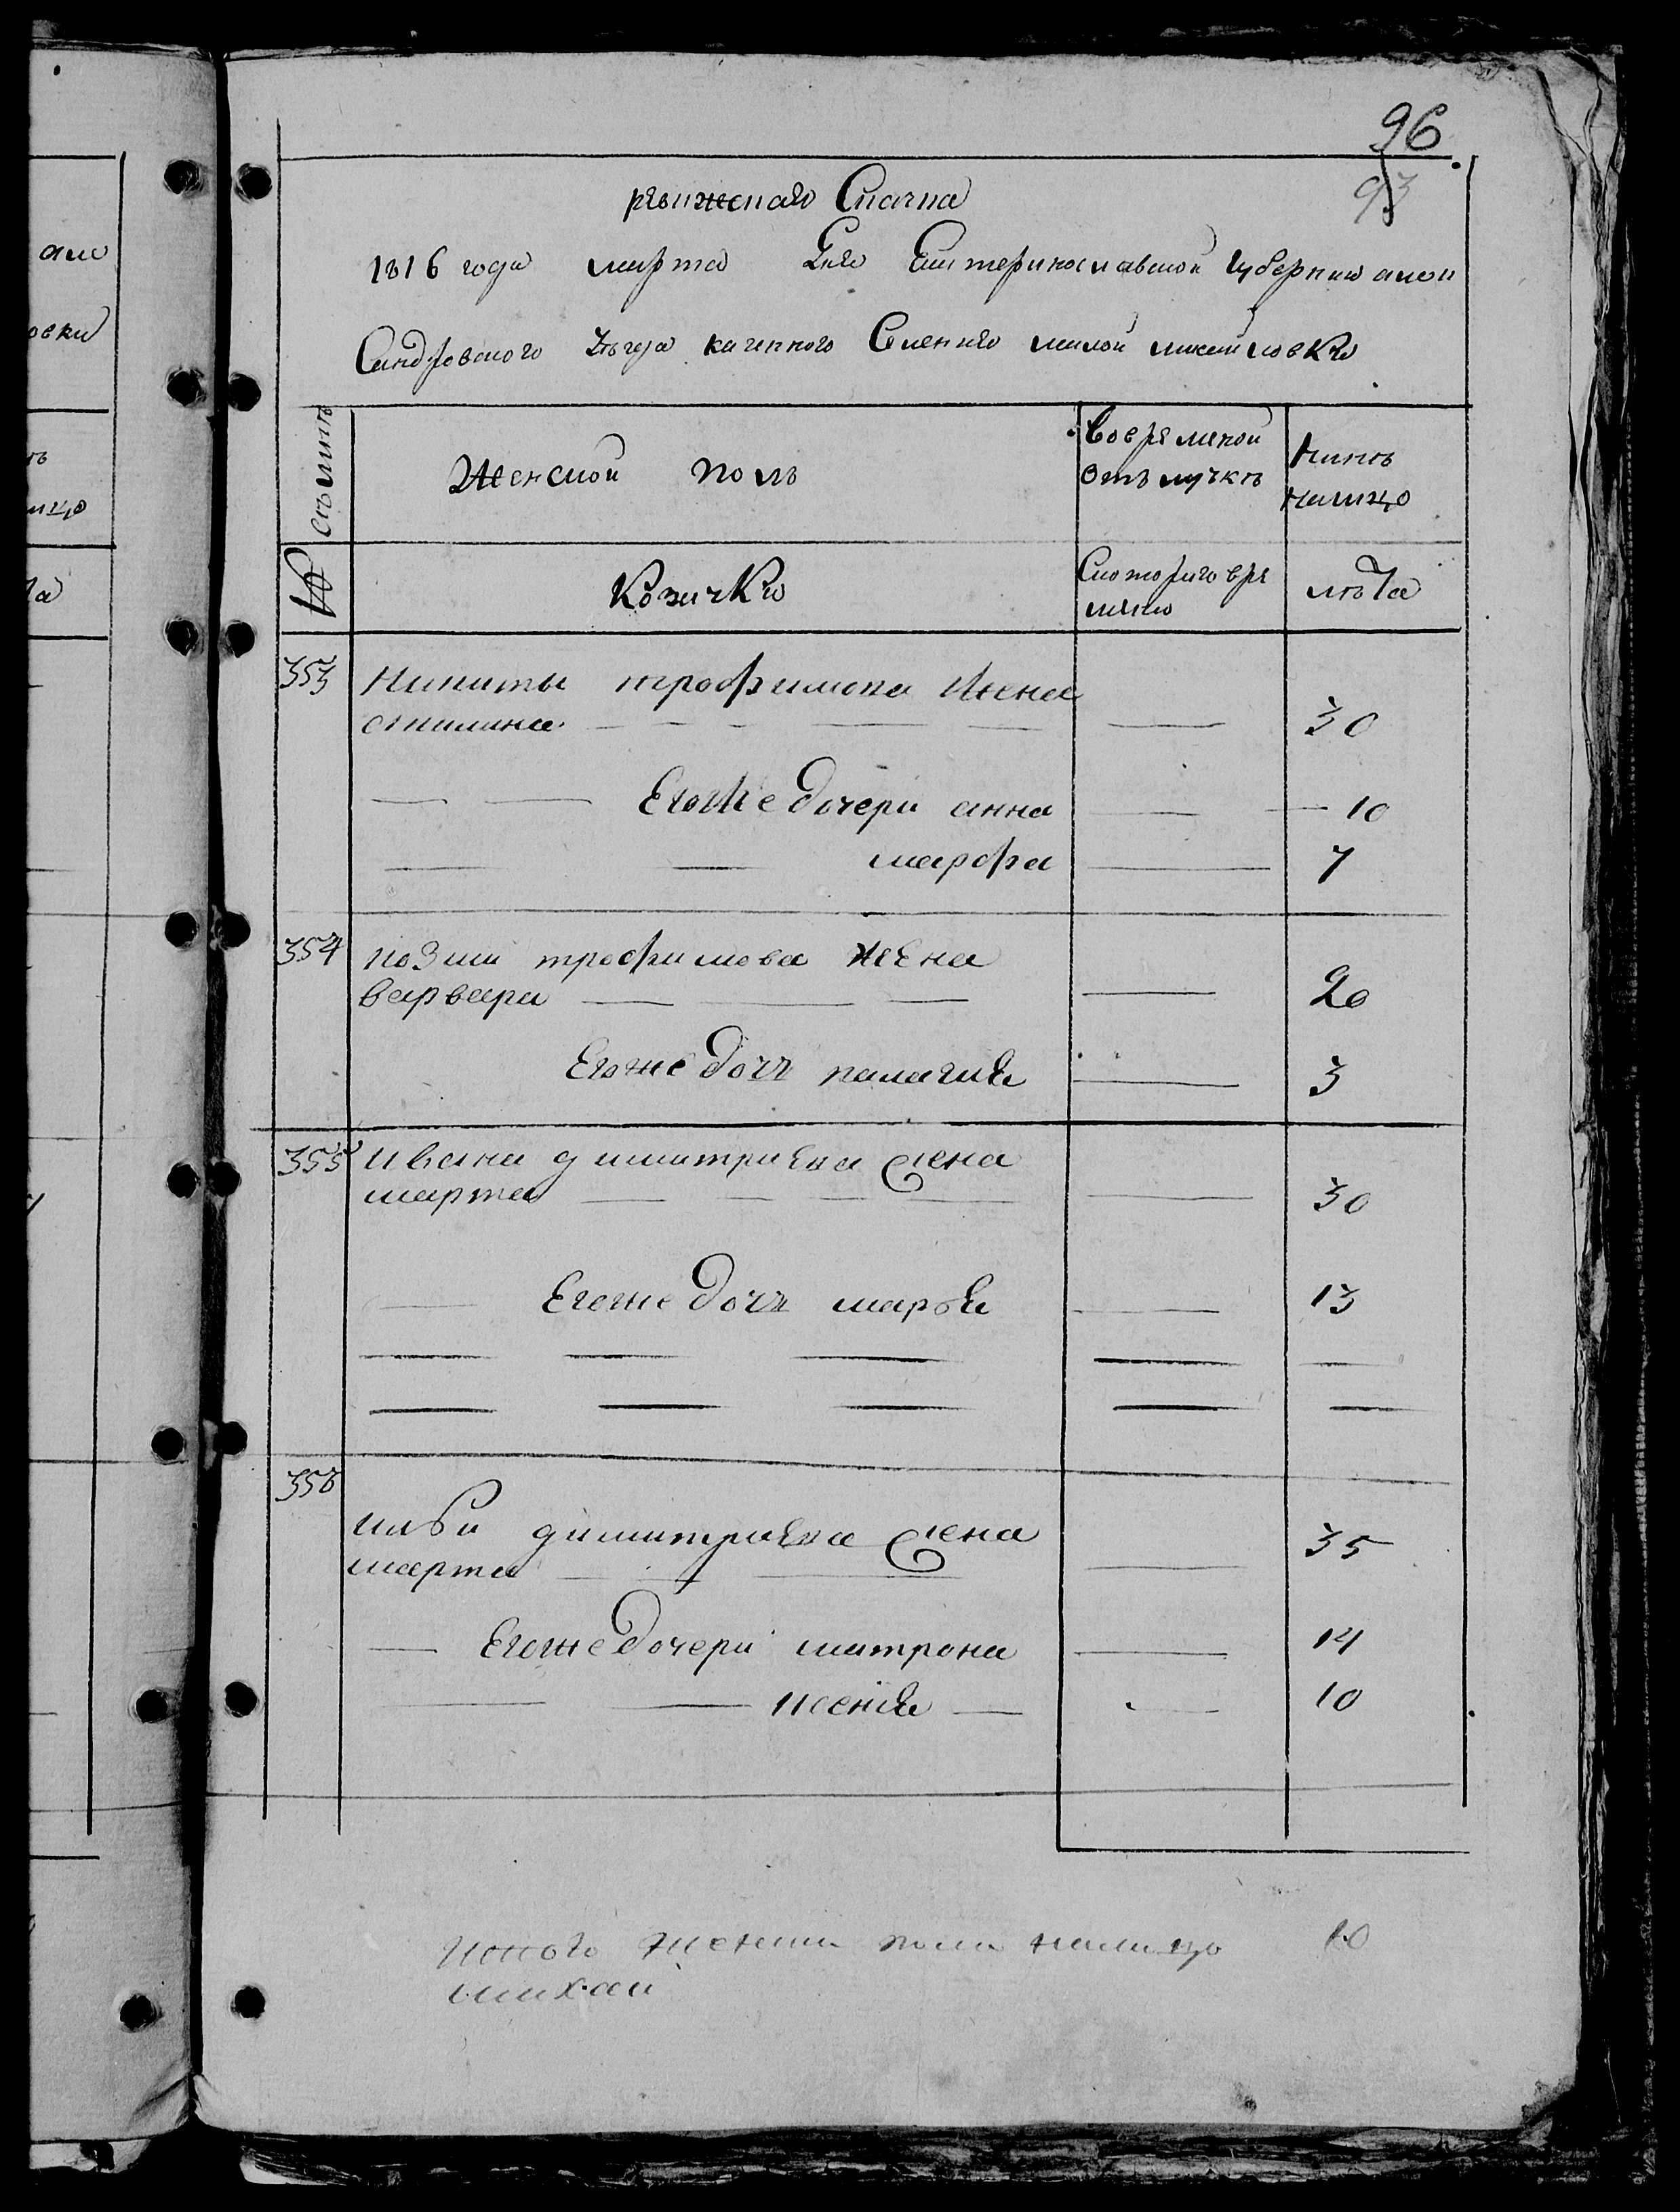 96
93
ревижская Сказка
1816 года марта дня Екатеринославской Губернии алек
Сандровского уѣзда казенного Селения малой михайловки
№ семъи
Женской полъ
Вовременой
отълучкѣ
Нинѣ
налицо
Козачки
Скоторого вре
мини
лѣта
353 Никиты трофимова Жена
акилина 30
Егоже дочери анна 10
марфа 7
354 козми трофимова жена
варвара 20
Егоже дочь палагия 3
355 Ивана димитриева жена
марта 30
Егоже дочь марья 13
356
ильи димитриева жена
марта 35
Егоже дочери матрона 14
ксения 10
Итого женска пола налицо 10
ам
овки
ицо
та